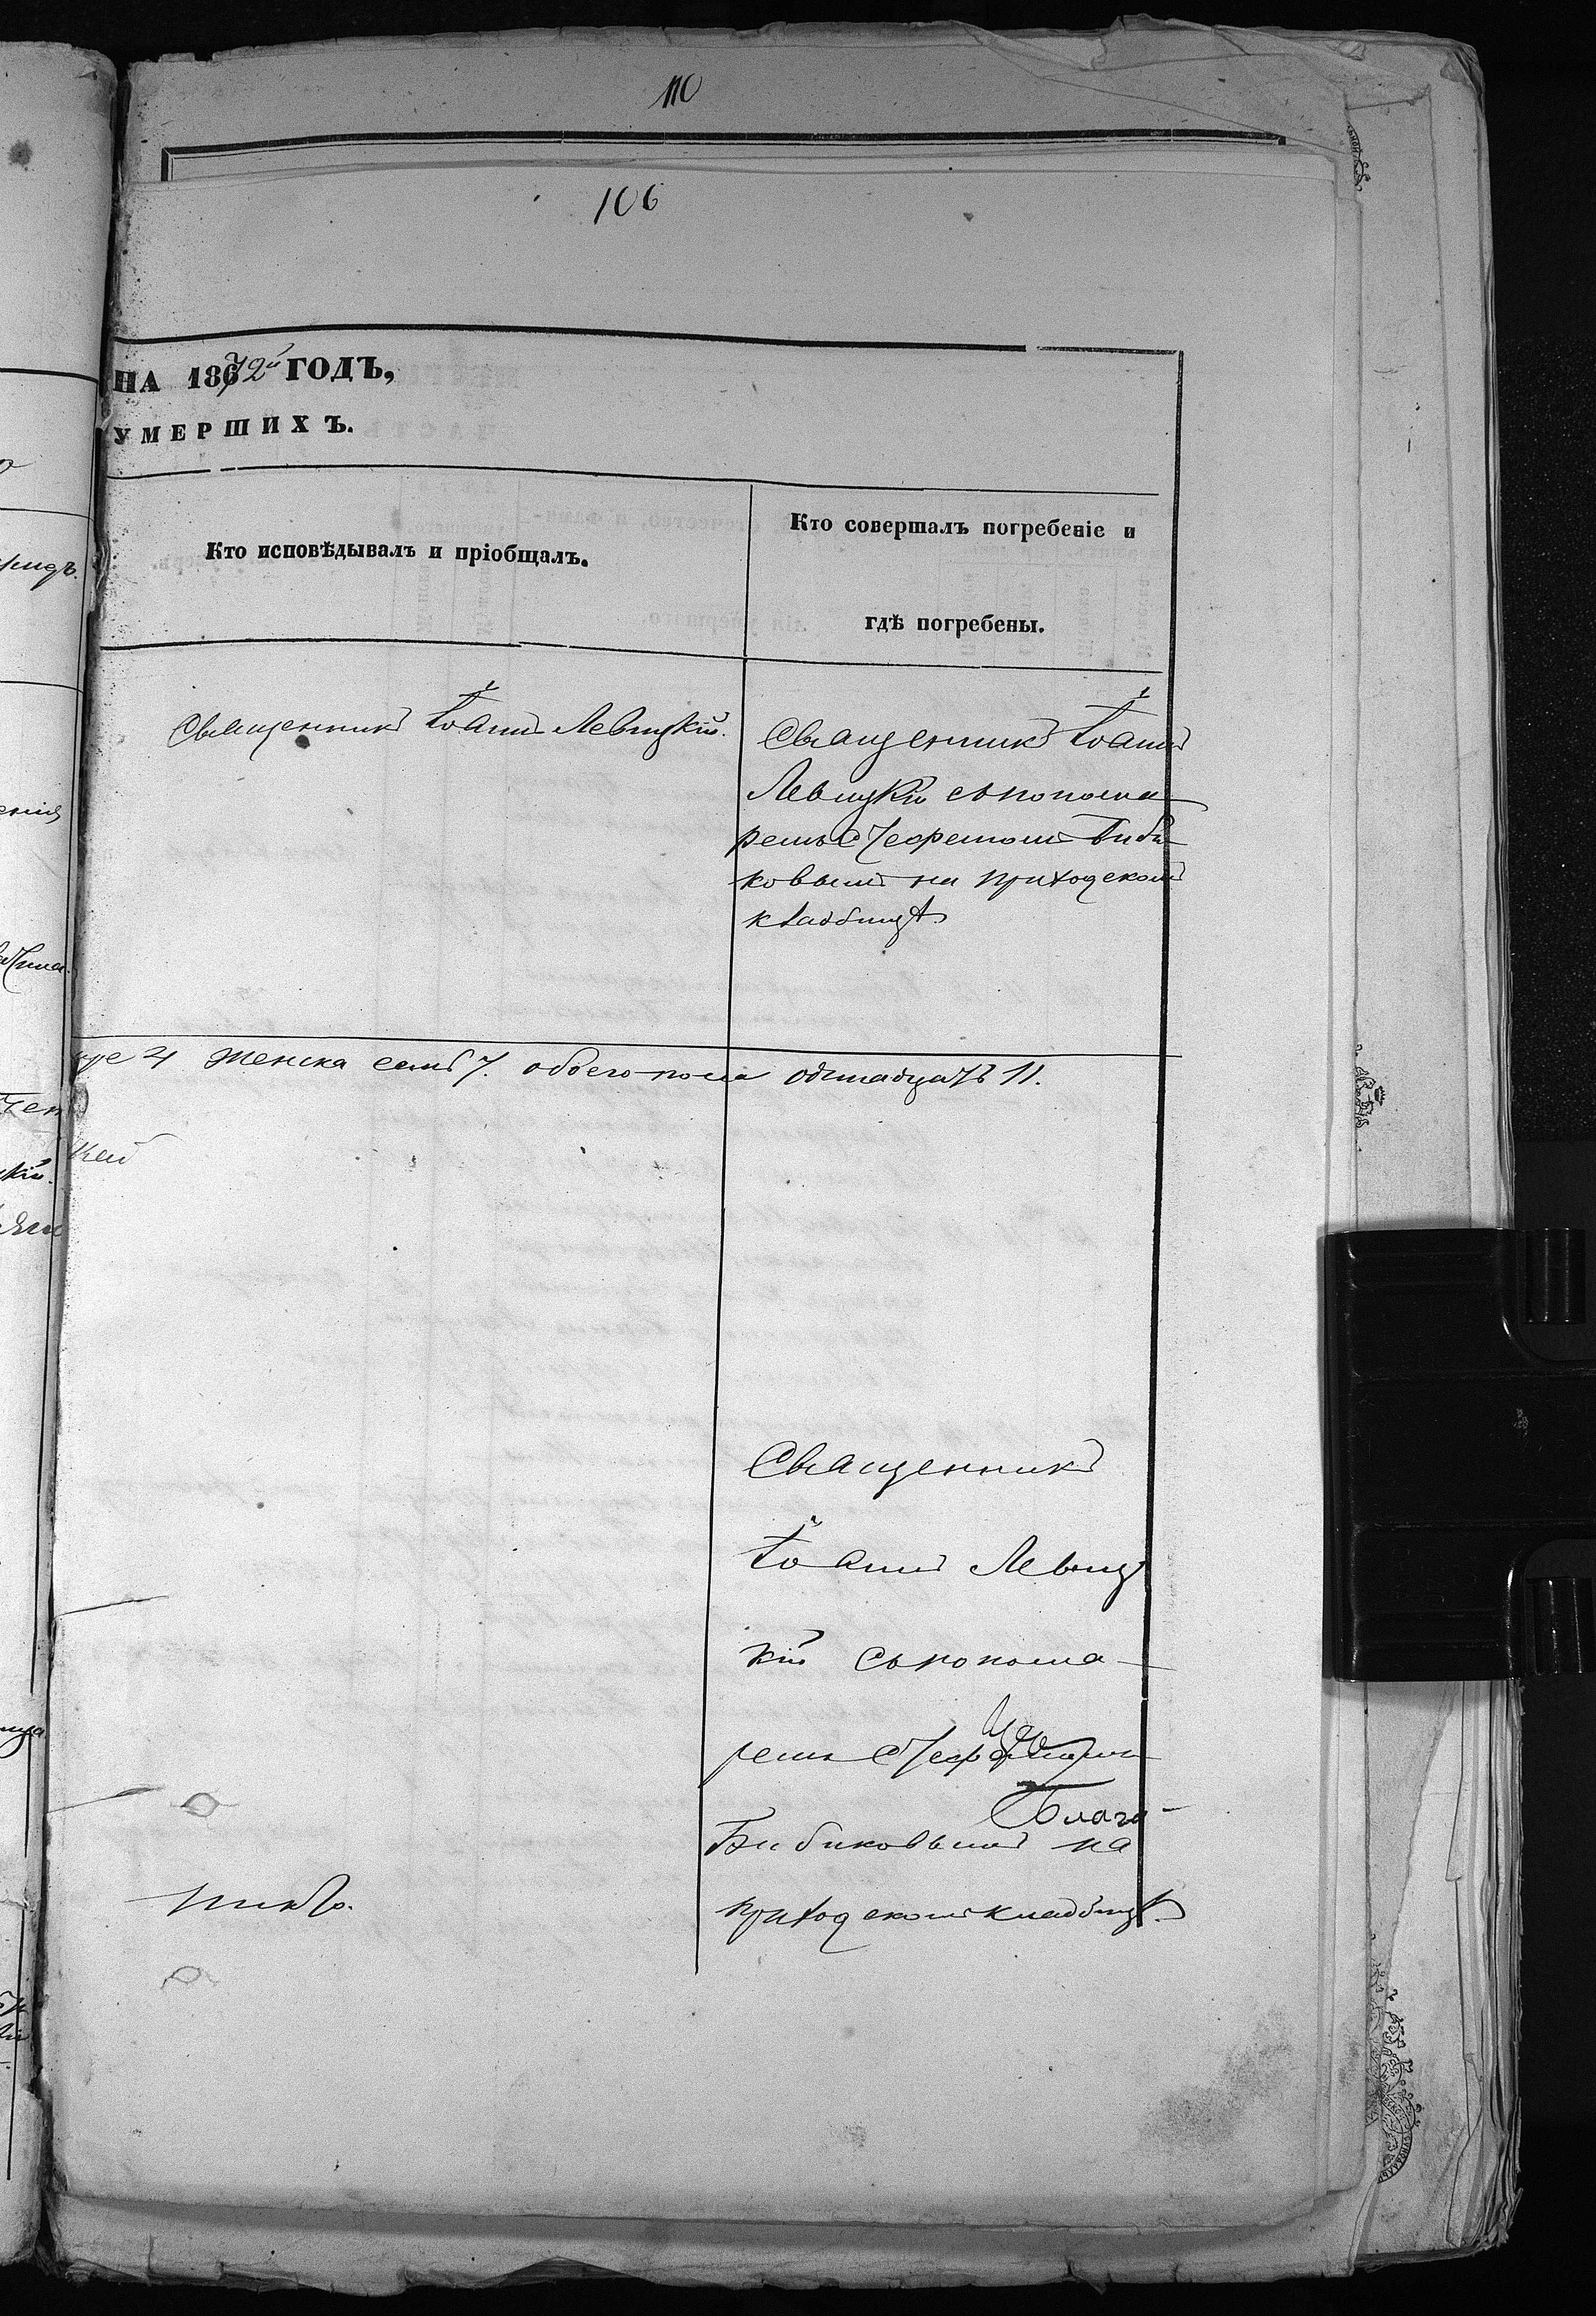 110
106
НА 1872й ГОДЪ,
УМЕРШИХЪ.
Кто исповѣдывалъ и пріобщалъ.
Кто совершалъ погребеніе и
гдѣ погребены.
Священникъ Іоаннъ Левицкій.
Священникъ Іоаннъ
Левицкій съ понома-
ремъ Стефаномъ Биби-
ковымъ на приходскомъ
кладбищѣ
ре 4 женска семь 7. обоего пола одинадцать 11.
Священникъ
Іоаннъ Левиц
кій съ понома-
ремъ
Благо-
Бибиковымъ на
никто.
приходскомъ кладбищѣ.